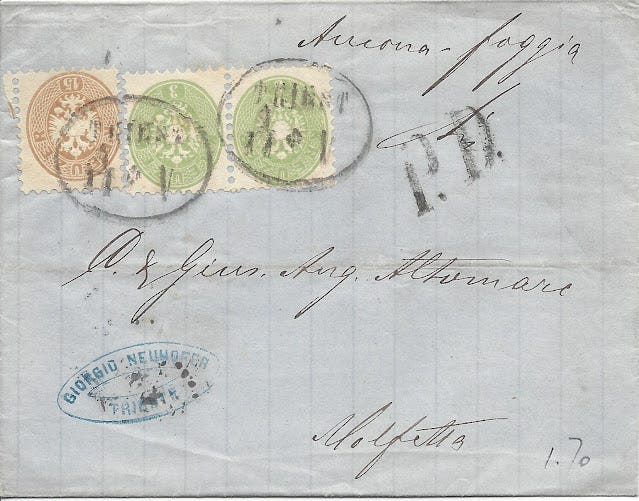 Ancona - foggia
15
3
TRIEST
TRIEST
11 V
11 V
P.D.
D. & Gius. Ang. Altomare
GIORGIO NEUHOFER
TRIESTE
Molfetta
1.70